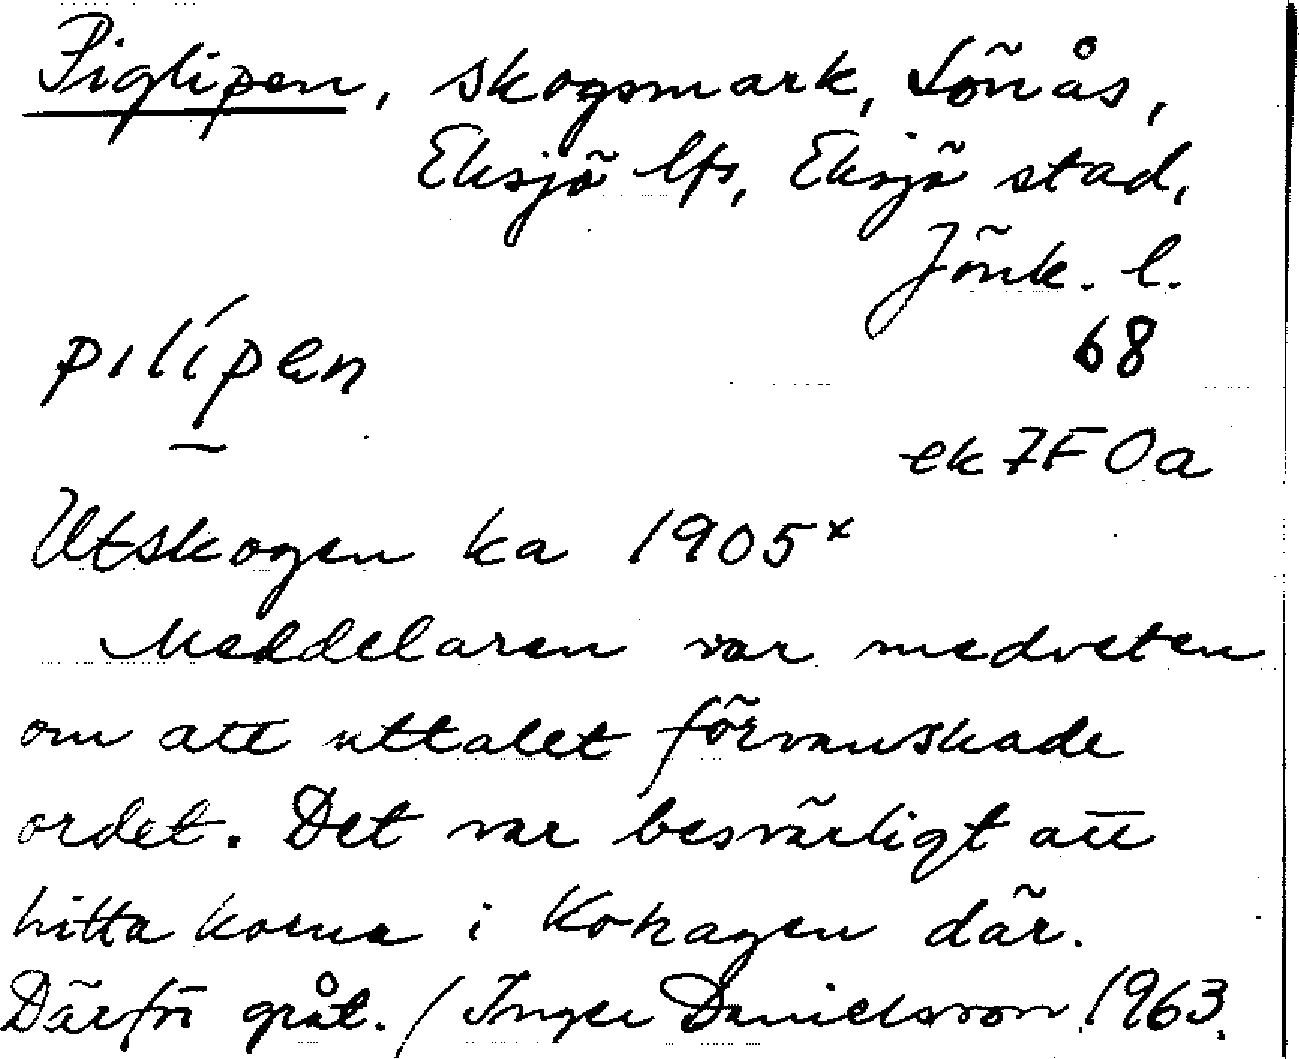 Piglipen, skogsmark, Lönås,
Eksjö lfs, Eksjö stad,
Jönk. l.
pılípen
68
ek 7F 0a
Utskogen ka 1905x
Meddelaren var medveten
om att uttalet förvanskade
ordet. Det var besvärligt att
hitta korna i Kohagen där.
Därför gråt. / Inger Danielsson 1963.